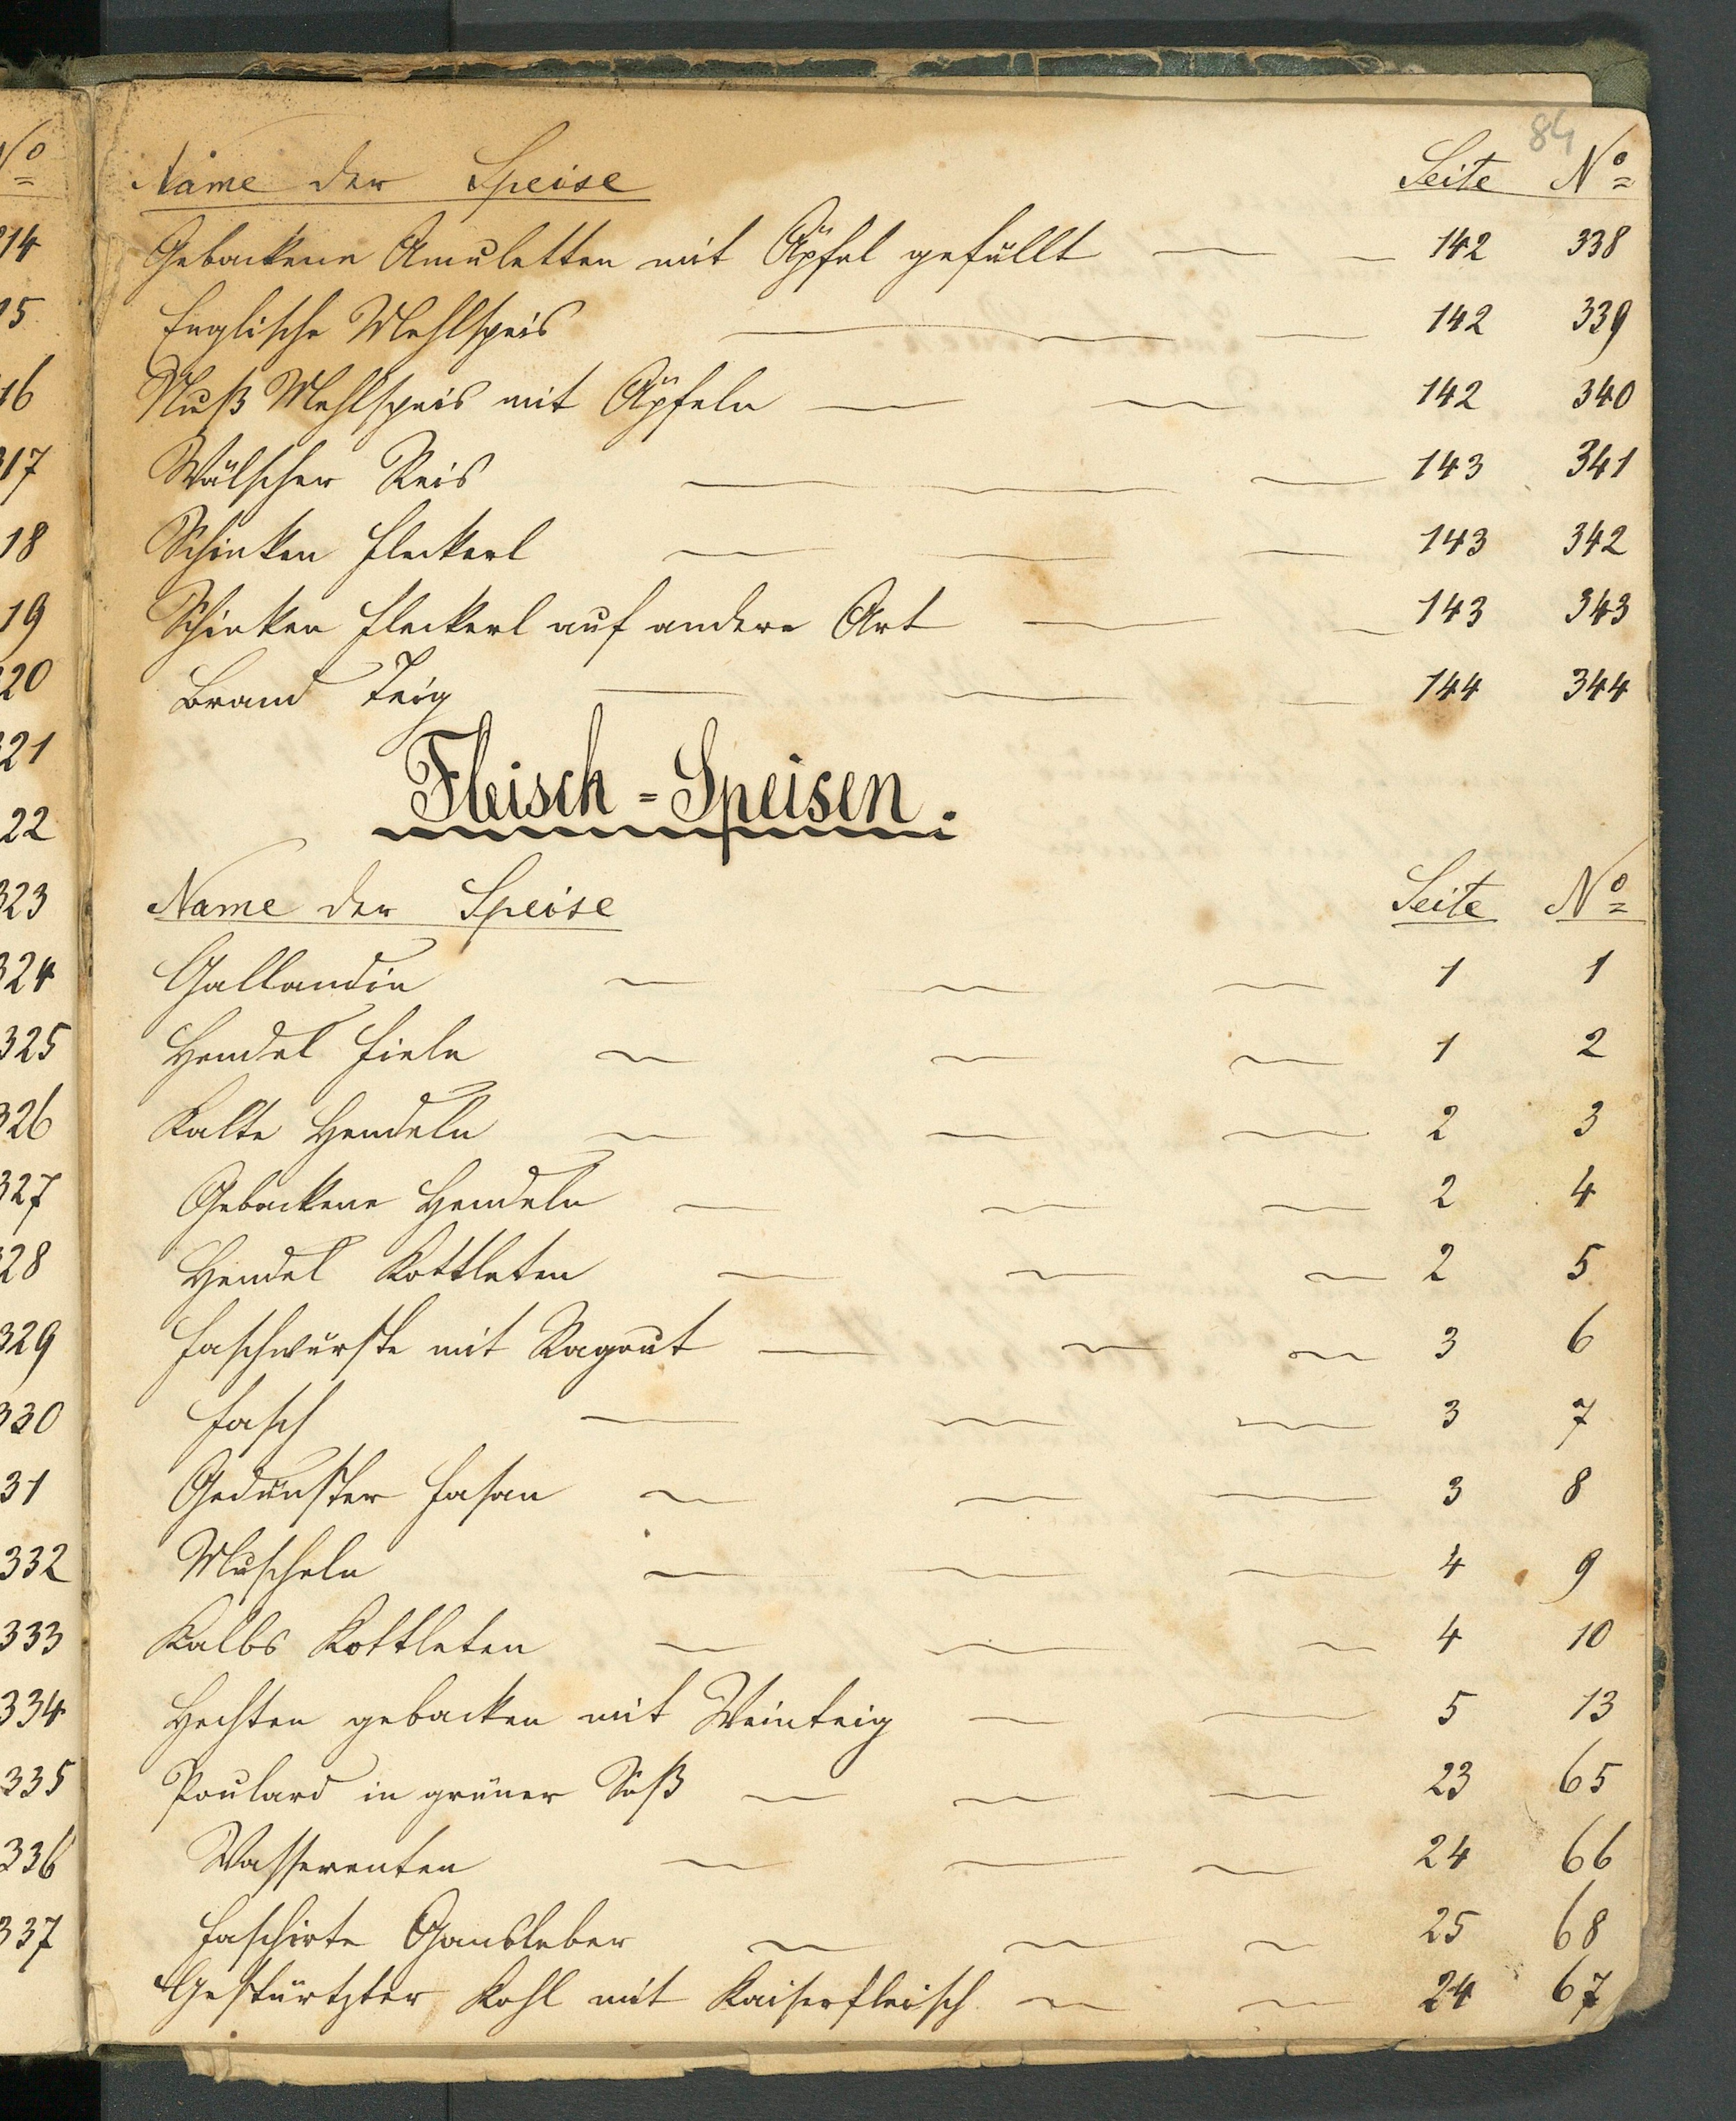 84
Name der Speise Seite No
Gebackene Amuletten mit Äpfel gefüllt 142 338
Englische Mehlspeis 142 339
Nuß Mehlspeis mit Äpfeln 142 340
Wälscher Reis 143 341
Schinken Fleckerl 143 342
Schinken Fleckerl auf andere Art 143 343
Brand Teig 144 344
Fleisch-Speisen.
Name der Speise Seite No
Gallandin 1 1
Hendel Fieln 1 2
Kalte Hendeln 2 3
Gebackene Hendeln 2 4
Hendel Kottleten 2 5
Faschwürste mit Ragout 3 6
Fasch 3 7
Gedünster Fasan 3 8
Muscheln 4 9
Kalbs Kottleten 4 10
Hechten gebacken mit Weinteig 5 13
Poulard in grüner Soß 23 65
Wasserenten 24 66
Faschirte Gansleber 25 68
Gestürtzter Kohl mit Kaiserfleisch 24 67
No
314
315
316
317
318
319
320
321
322
323
324
325
326
327
328
329
330
331
332
333
334
335
336
337